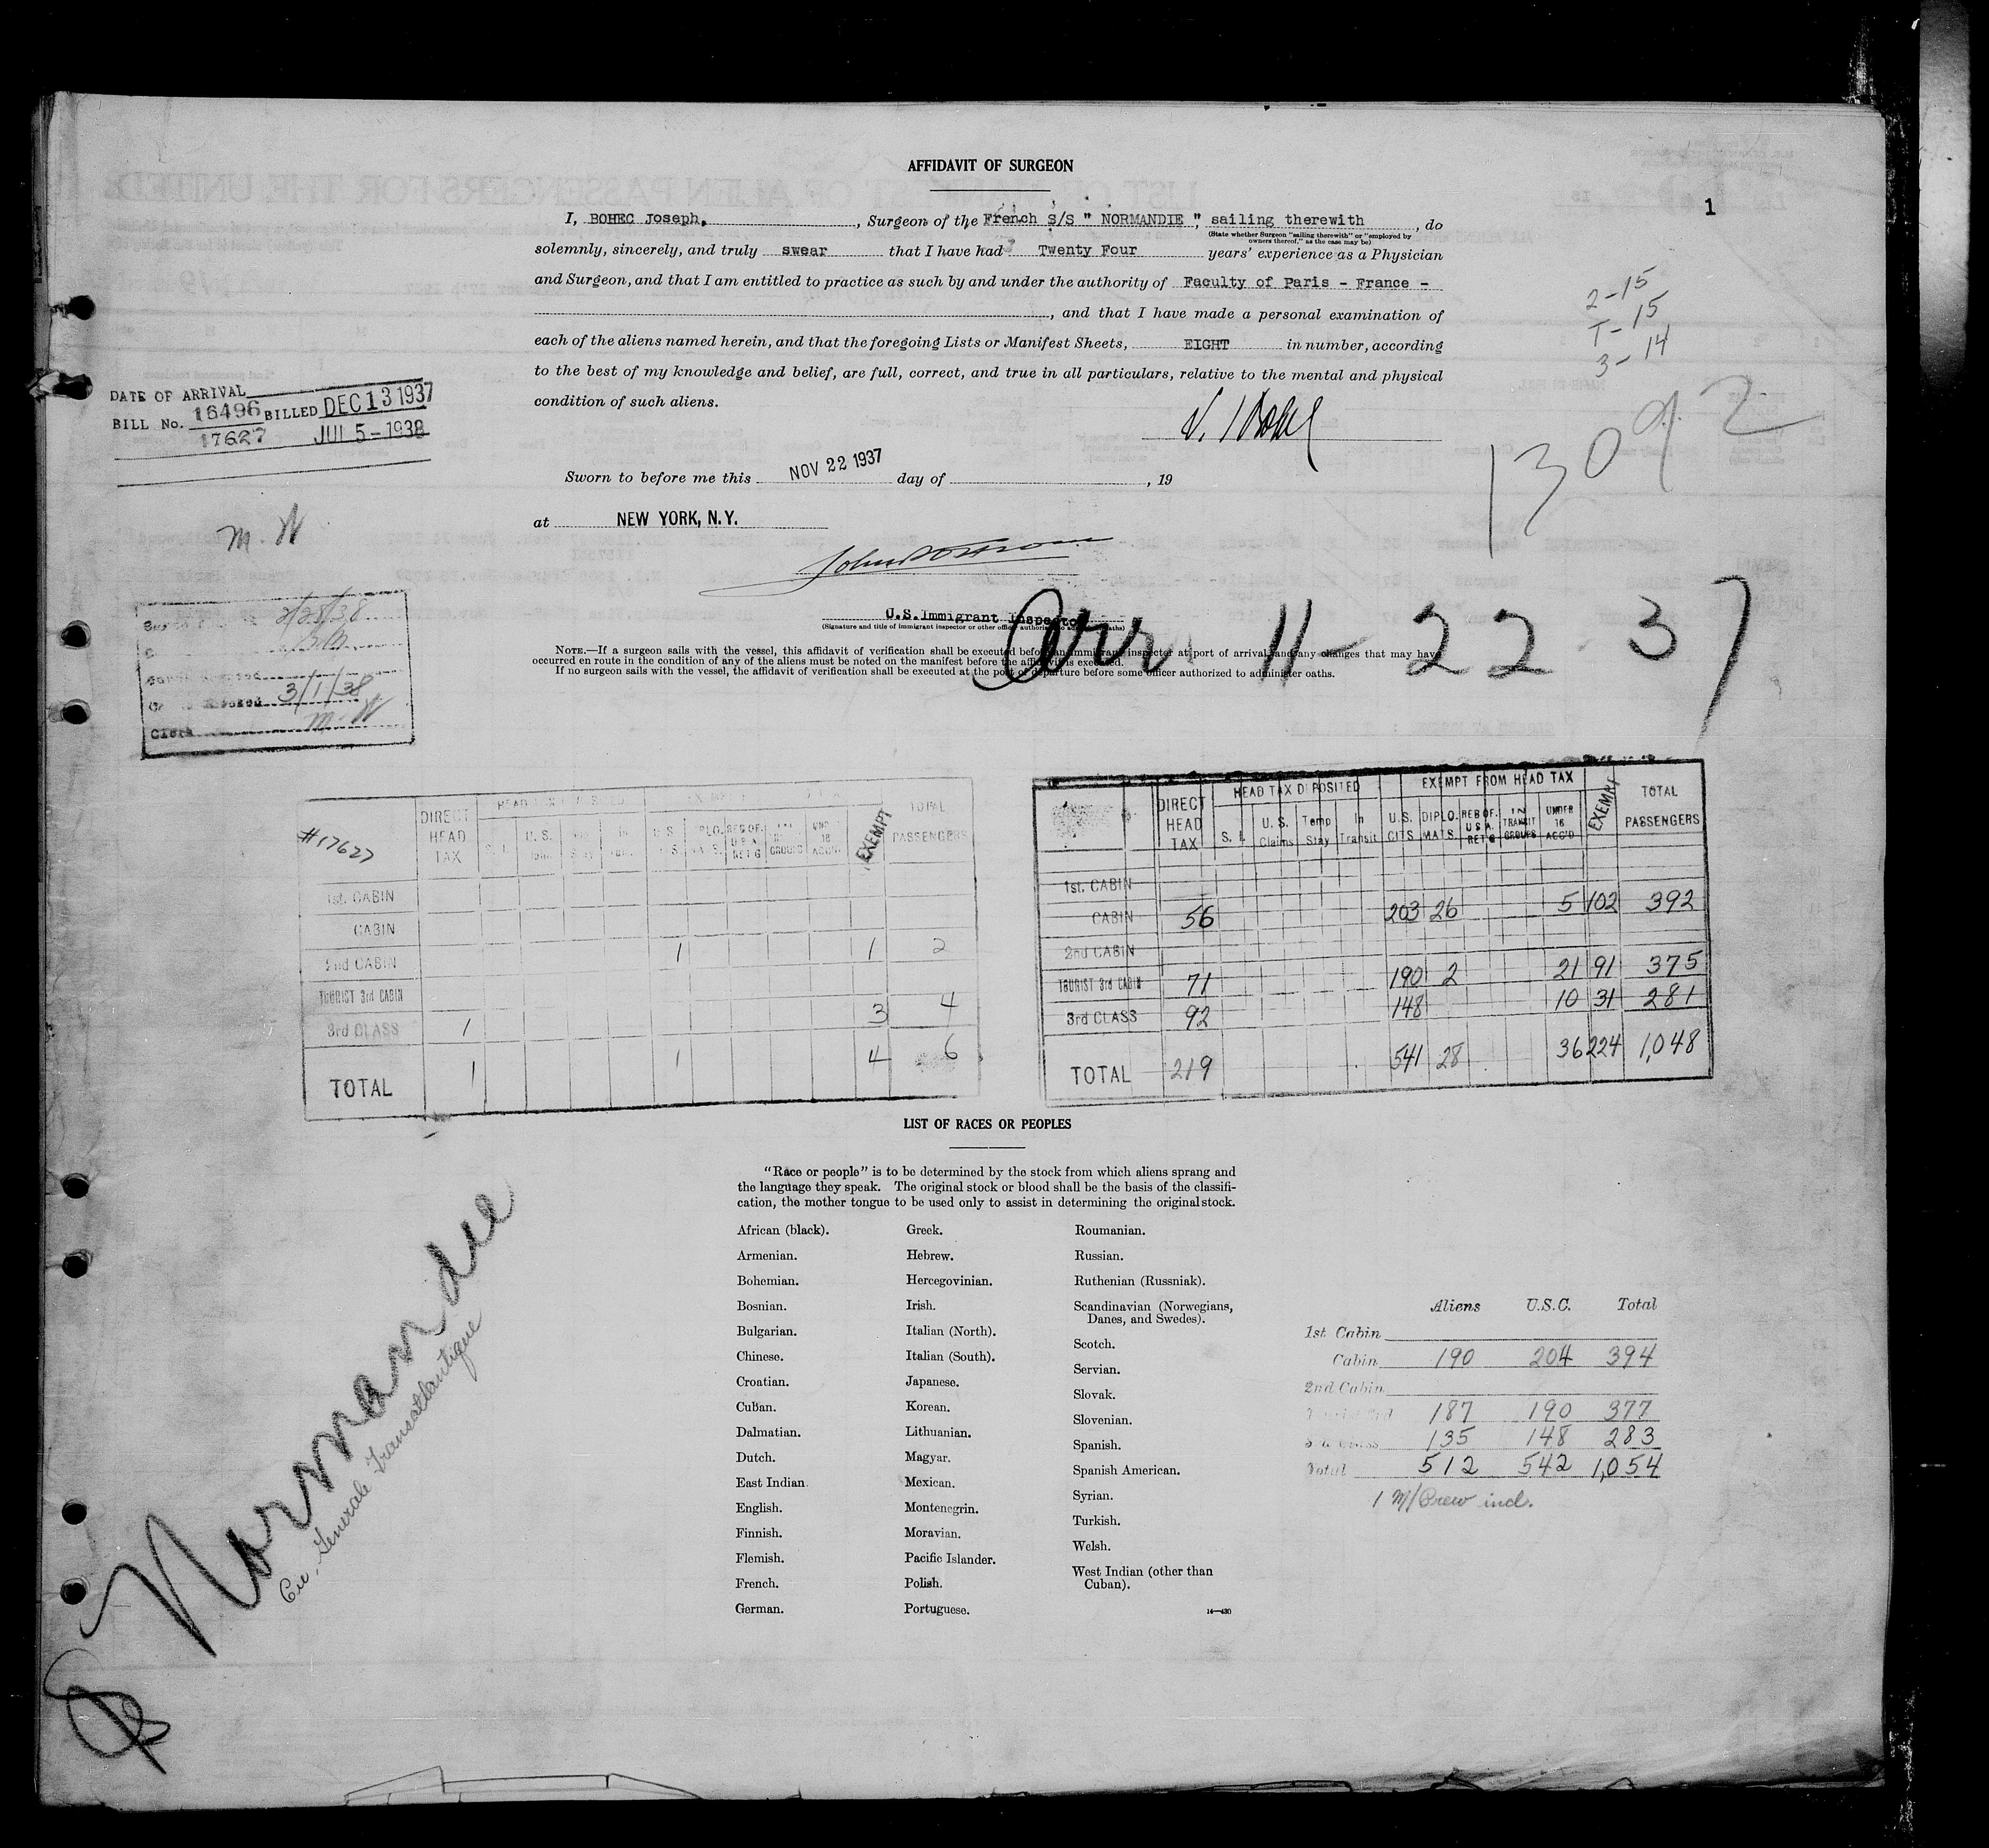 AFFIDAVIT OF SURGEON
1
I, BOHEC Joseph, , Surgeon of the French S/S " NORMANDIE ", sailing therewith , do
(State whether Surgeon "sailing therewith" or "employed by
owners thereof," as the case may be)
solemnly, sincerely, and truly swear that I have had Twenty Four years' experience as a Physician
and Surgeon, and that I am entitled to practice as such by and under the authority of Faculty of Paris - France -
, and that I have made a personal examination of
each of the aliens named herein, and that the foregoing Lists or Manifest Sheets, EIGHT in number, according
to the best of my knowledge and belief, are full, correct, and true in all particulars, relative to the mental and physical
condition of such aliens.
2-15
T-15
3-14
1309 2
DATE OF ARRIVAL
BILL No. 16496 BILLED DEC 13 1937
17627 JUL 5-1938
Sworn to before me this NOV 22 1937 day of , 19
at NEW YORK, N.Y.
M. W
U.S. Immigrant Inspector
(Signature and title of immigrant inspector or other officer authorized to administer oaths)
Arr 11-22-37
NOTE.—If a surgeon sails with the vessel, this affidavit of verification shall be executed before an immigrant inspector at port of arrival, and any changes that may have
occurred en route in the condition of any of the aliens must be noted on the manifest before the affidavit is executed.
If no surgeon sails with the vessel, the affidavit of verification shall be executed at the port of departure before some officer authorized to administer oaths.
2/28/38
3/1/38
Clerk M-W
#17627
DIRECT HEAD TAX
U.S.
EXEMPT
TOTAL PASSENGERS
1st. CABIN
CABIN
2nd CABIN 1 1 2
TOURIST 3rd CABIN
3rd CLASS 1 3 4
TOTAL 1 1 4 6
DIRECT HEAD TAX
HEAD TAX DEPOSITED
S. I. U. S. Claims Temp Stay In Transit
EXEMPT FROM HEAD TAX
U.S. CITS. DIPLO. MATS. RES OF. U S A. RET'G IN TRANSIT GROUPS UNDER 16 ACC'D
EXEMPT
TOTAL PASSENGERS
1st. CABIN
CABIN 56 203 26 5 102 392
2nd CABIN
TOURIST 3rd CABIN 71 190 2 21 91 375
3rd CLASS 92 148 10 31 281
TOTAL 219 541 28 36 224 1,048
LIST OF RACES OR PEOPLES
"Race or people" is to be determined by the stock from which aliens sprang and
the language they speak. The original stock or blood shall be the basis of the classifi-
cation, the mother tongue to be used only to assist in determining the original stock.
African (black).
Armenian.
Bohemian.
Bosnian.
Bulgarian.
Chinese.
Croatian.
Cuban.
Dalmatian.
Dutch.
East Indian
English.
Finnish.
Flemish.
French.
German.
Greek.
Hebrew.
Hercegovinian.
Irish.
Italian (North).
Italian (South).
Japanese.
Korean.
Lithuanian.
Magyar.
Mexican.
Montenegrin.
Moravian.
Pacific Islander.
Polish.
Portuguese.
Roumanian.
Russian.
Ruthenian (Russniak).
Scandinavian (Norwegians,
Danes, and Swedes).
Scotch.
Servian.
Slovak.
Slovenian.
Spanish.
Spanish American.
Syrian.
Turkish.
Welsh.
West Indian (other than
Cuban).
14—430
Aliens U.S.C. Total
1st Cabin
Cabin 190 204 394
2nd Cabin
187 190 377
135 148 283
Total 512 542 1,054
1 M/Crew incl.
Normandie
Cie. Generale Transatlantique